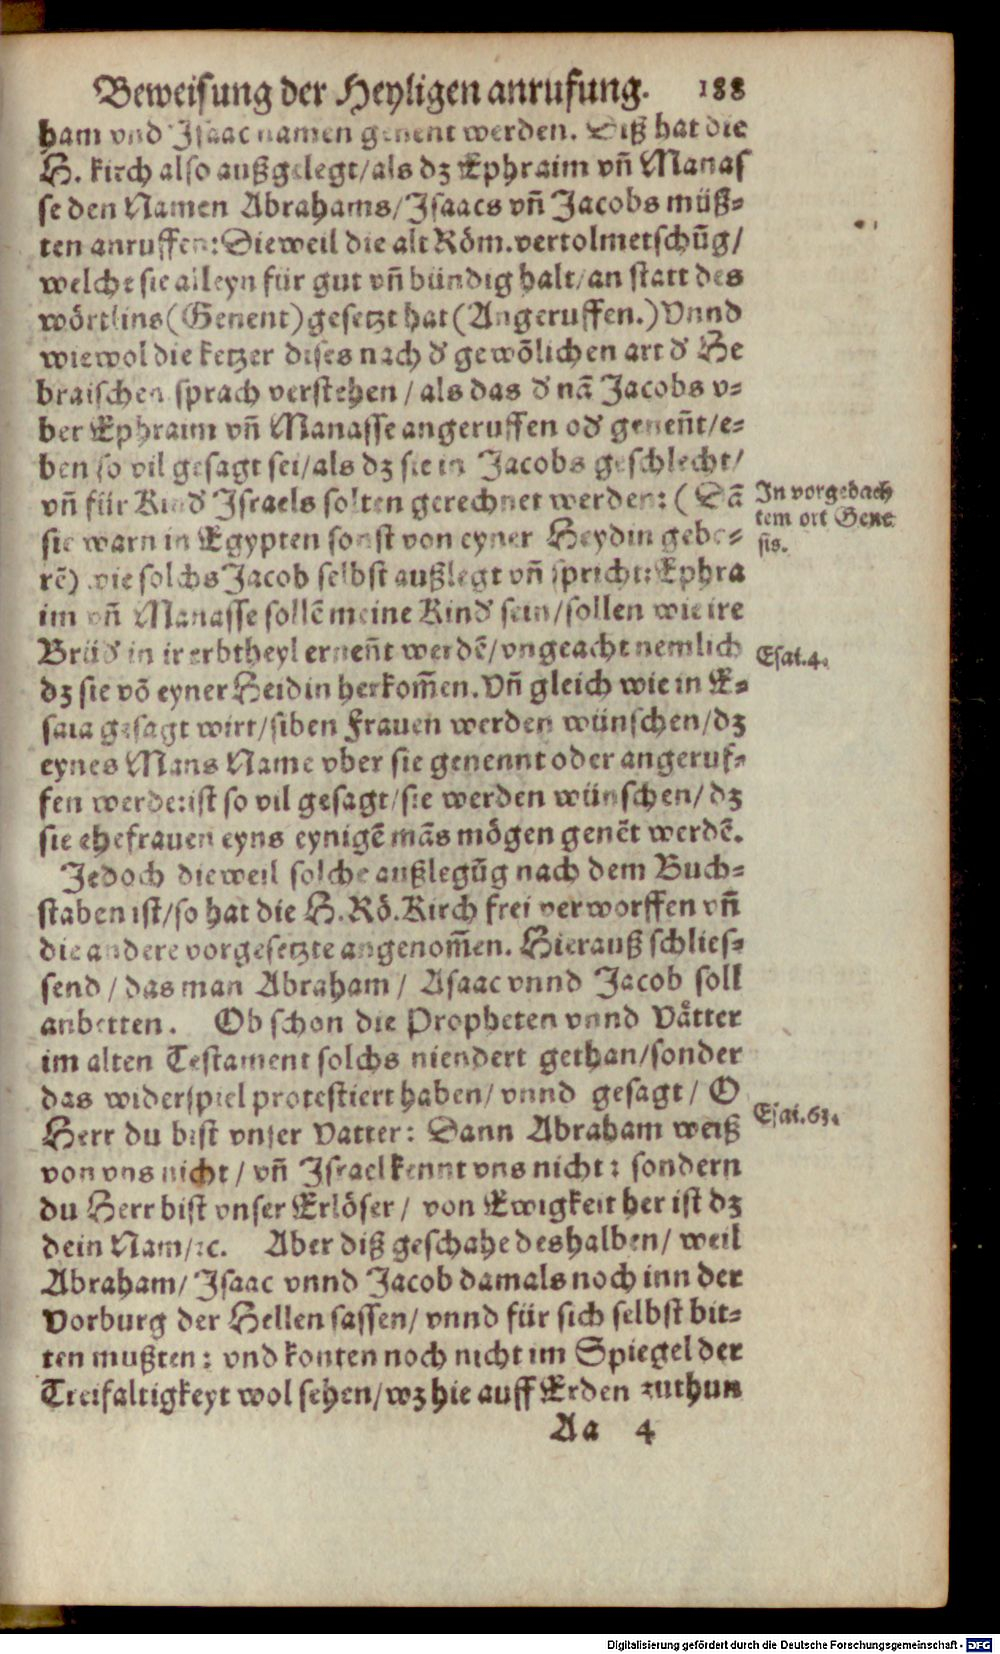 Beweisung der Heyligen anrufung. 188
ham vnd Isaac namen genent werden. Diß hat die
H. kirch also außgelegt/als dz Ephraim vñ Manas
se den Namen Abrahams/Isaacs vñ Jacobs müß-
ten anruffen: Dieweil die alt Röm. vertolmetschũg/
welche sie alleyn für gut vñ bündig halt/an statt des
wörtlins (Genent) gesetzt hat (Angeruffen.) Vnnd
wiewol die ketzer dises nach d' gewõlichen art d' He
braischen sprach verstehen/als das d' nã Jacobs v-
ber Ephraim vñ Manasse angeruffen od' genent̃/e-
ben so vil gesagt sei/als dz sie in Jacobs geschlecht/
vñ für Kind' Israels solten gerechnet werden: (Dã
In vorgedach
tem ort Gene
sis.
sie warn in Egypten sonst von eyner Heydin gebo-
rẽ) wie solchs Jacob selbst außlegt vñ spricht: Ephra
im vñ Manasse sollẽ meine Kind' sein/sollen wie ire
Brüd' in ir erbtheyl erneñt werdẽ/vngeacht nemlich
Esai.4.
dz sie võ eyner Heidin herkom̃en. Vñ gleich wie in E-
saia gesagt wirt/siben Frauen werden wünschen/dz
eynes Mans Name vber sie genennt oder angeruf-
fen werde: ist so vil gesagt/sie werden wünschen/dz
sie ehefrauen eyns eynigẽ mãs mögen genẽt werdẽ.
Jedoch dieweil solche außlegũg nach dem Buch-
staben ist/so hat die H. Rö. Kirch frei verworffen vñ
die andere vorgesetzte angenom̃en. Hierauß schlies-
send/das man Abraham/Asaac vnnd Jacob soll
anbetten. Ob schon die Propheten vnnd Vätter
im alten Testament solchs niendert gethan/sonder
das widerspiel protestiert haben/vnnd gesagt/O
Esai.63.
Herr du bist vnser Vatter: Dann Abraham weiß
von vns nicht/vñ Israel kennt vns nicht: sondern
du Herr bist vnser Erlöser/von Ewigkeit her ist dz
dein Nam/ꝛc. Aber diß geschahe deshalben/weil
Abraham/Isaac vnnd Jacob damals noch inn der
Vorburg der Hellen sassen/vnnd für sich selbst bit-
ten mußten: vnd konten noch nicht im Spiegel der
Treifaltigkeyt wol sehen/wz hie auff Erden zuthun
Aa 4
Digitalisierung gefördert durch die Deutsche Forschungsgemeinschaft - DFG